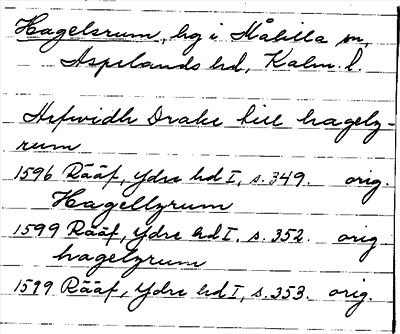 Hagelsrum, hg i Målilla sn,
Aspelands hd, Kalm. l.
Arfwidh Drake till hagelz-
rum
1596 Rääf, Ydre hd I, s. 349. orig.
Hagellzrum
1599 Rääf, Ydre hd I. s. 352. orig.
hagelzrum
1599 Rääf, Ydre hd I, s. 353. orig.